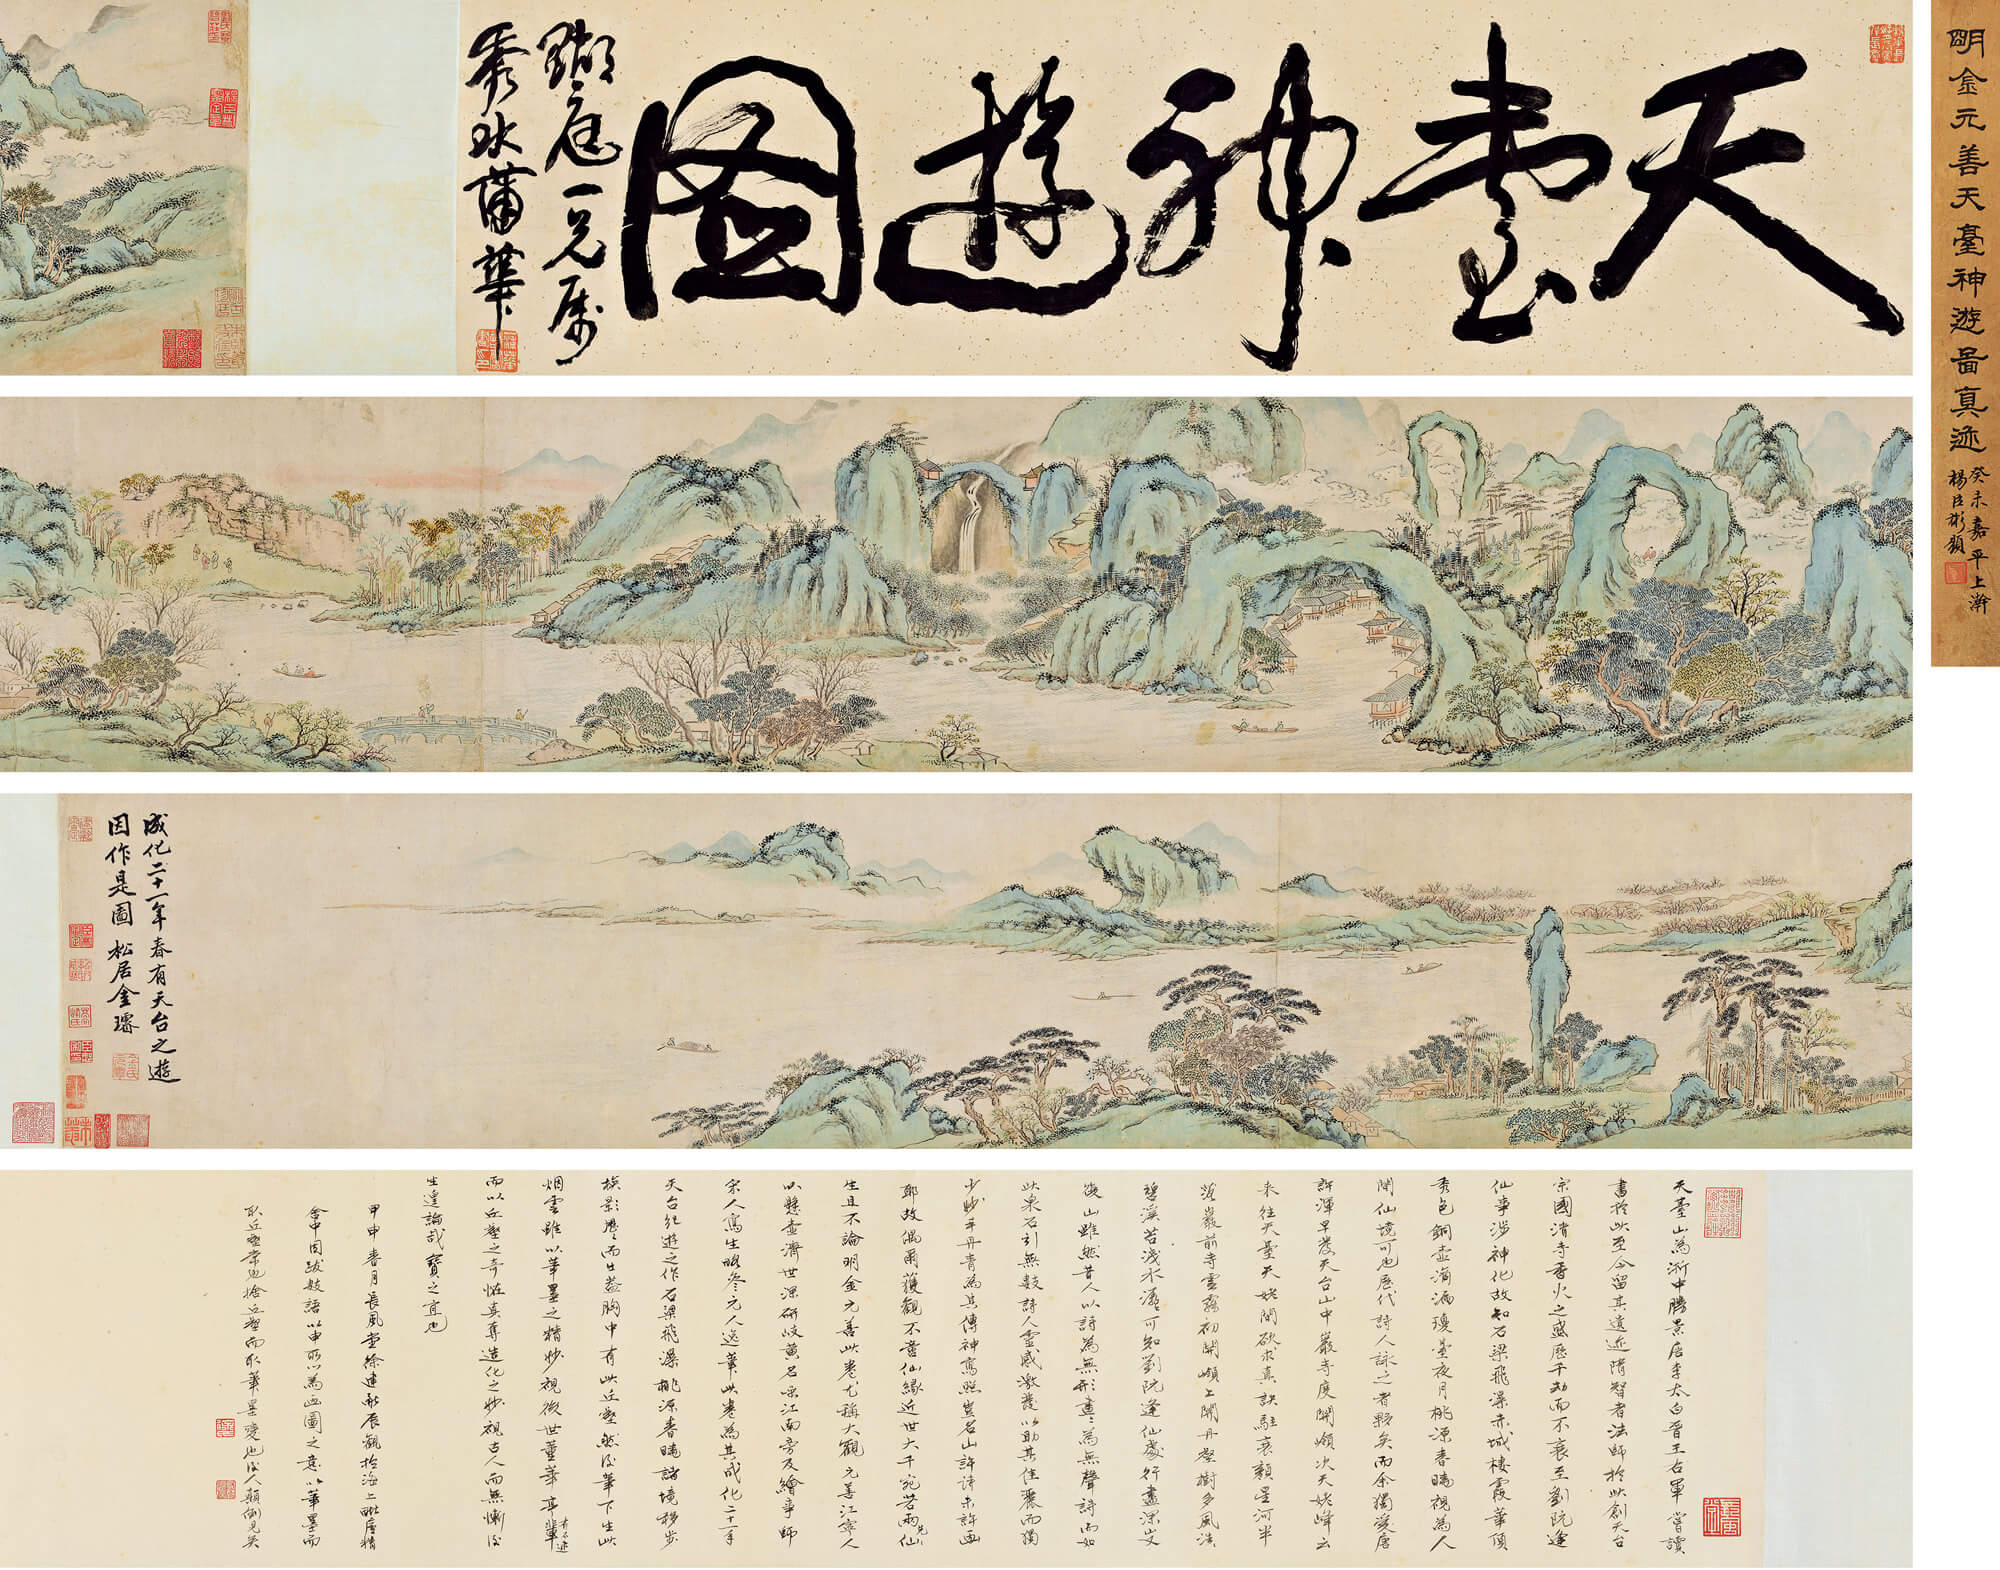 明金元善天臺神遊啚真迹
癸未嘉平上澣
楊臣彬題
天臺神遊图
鼎庭一兄属
秀水蒲華
成化二十一年春有天台之遊
因作是圖 松居金璿
天臺山為浙中勝景唐李太白晉王右軍嘗讀
書於此至今留其遺迹隋智者法師於此創天台
宗國清寺香火之盛歷千劫而不衰至劉阮逢
仙事涉神化故知石梁飛瀑赤城棲霞華頂
秀色銅壺滴漏瓊臺夜月桃源春曉視為人
間仙境可也歷代詩人詠之者夥矣而余獨愛唐
許渾早發天台山中巖寺度關嶺次天姥岑云
來往天臺天姥間欲求真訣駐衰顏星河半
落巖前寺雲霧初開嶺上關丹壑樹多風浩
碧溪苔淺水潺可知劉阮逢仙處行盡深山又
後山雖然昔人以詩為無形畫畫為無聲詩而如
此泉石引無數詩人靈感激發以助其佳麗而獨
少妙手丹青為其傳神寫照豈名山許詩未許画
耶故偶爾獲觀不啻仙緣近世大千宛若兩仙
生且不論明金元善此卷尤稱大觀元善江寧人
以懸壺濟世深研岐黄名噪江南旁及繪事師
宋人寫生略參元人逸筆此卷為其成化二十一年
天台紀遊之作石梁飛瀑桃源春曉諸境移步
換影歷歷而出蓋胸中有此丘壑然後筆下生此
烟雲雖以筆墨之精妙視後世董華亭輩
而以丘壑之奇恠真奪造化之妙視古人而無慚後
生遑論哉寶之宜也
甲申春月長風堂徐建融展觀於海上毗廬精
舍中因跋數語以申所以為画圖之意以筆墨而
取丘壑常也捨丘壑而取筆墨變也後人顛倒見矣